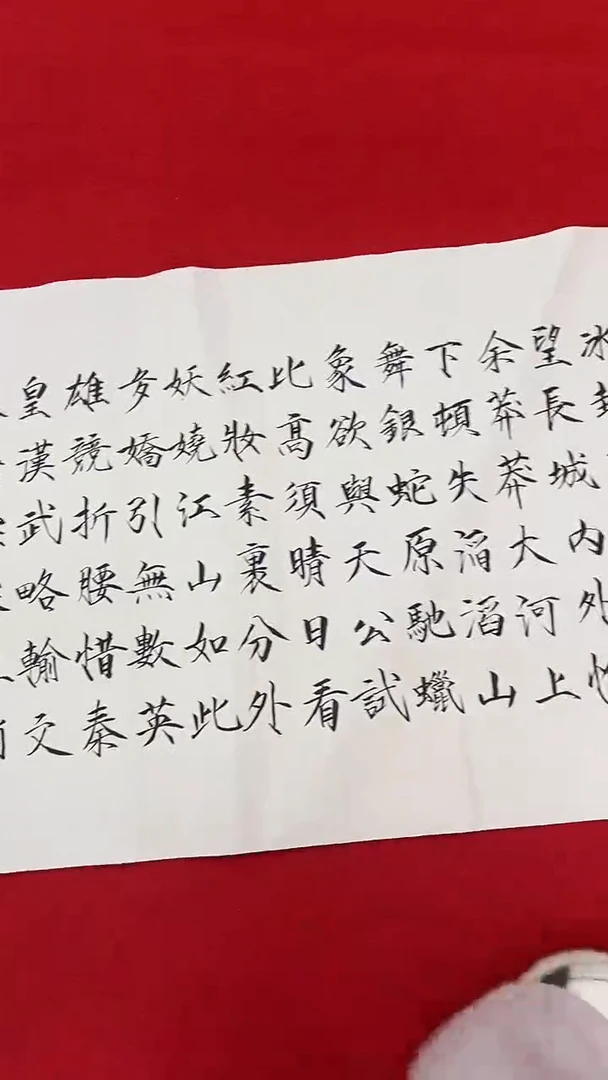 冰封
望長城内外惟
余莽莽大河上
下頓失滔滔山
舞銀蛇原馳蠟
象欲與天公試
比高須晴日看
紅妝素裹分外
妖嬈江山如此
多嬌引無數英
雄競折腰惜秦
皇漢武略輸文